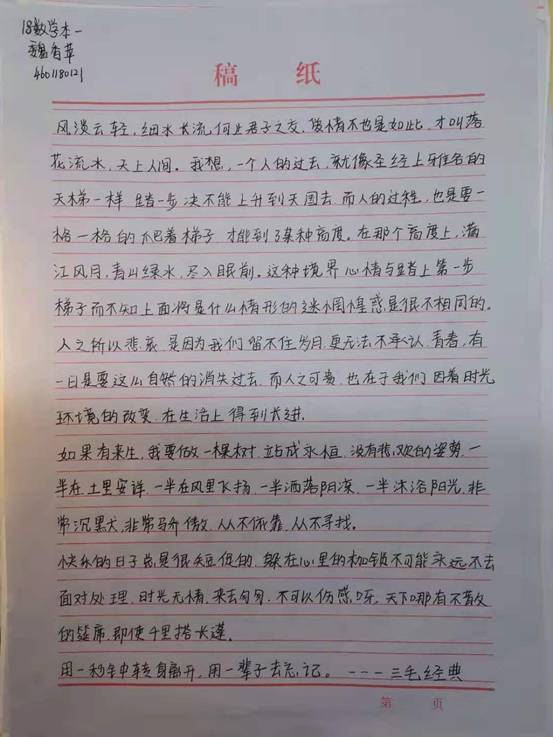 18数学本一
魏香草
4601180121
稿 纸
风淡云轻,细水长流,何止君子之交,爱情不也是如此,才叫落
花流水,天上人间。我想,一个人的过去,就像圣经上雅各的
天梯一样 踏一步决不能上升到天国去,而人的过程,也是要一
格一格的爬着梯子,才能到了某种高度。在那个高度上,满
江风月,青山绿水,尽入眼前。这种境界心情与踏上第一步
梯子而不知上面将是什么情形的迷惘惶惑是很不相同的。
人之所以悲哀,是因为我们留不住岁月,更无法不承认,青春,有
一日是要这么自然的消失过去,而人之可贵,也在于我们因着时光
环境的改变,在生活上得到长进.
如果有来生,我要做一棵树,站成永恒,没有悲欢的姿势,一
半在土里安详,一半在风里飞扬,一半洒落阴凉,一半沐浴阳光,非
常沉默,非常骄傲,从不依靠,从不寻找。
快乐的日子总是很短促的,躲在心里的枷锁不可能永远不去
面对处理,时光无情,来去匆匆,不可以伤感呀,天下哪有不散
的筵席,即使千里搭长蓬。
用一秒钟转身离开,用一辈子去忘记。 ----三毛经典
第 页